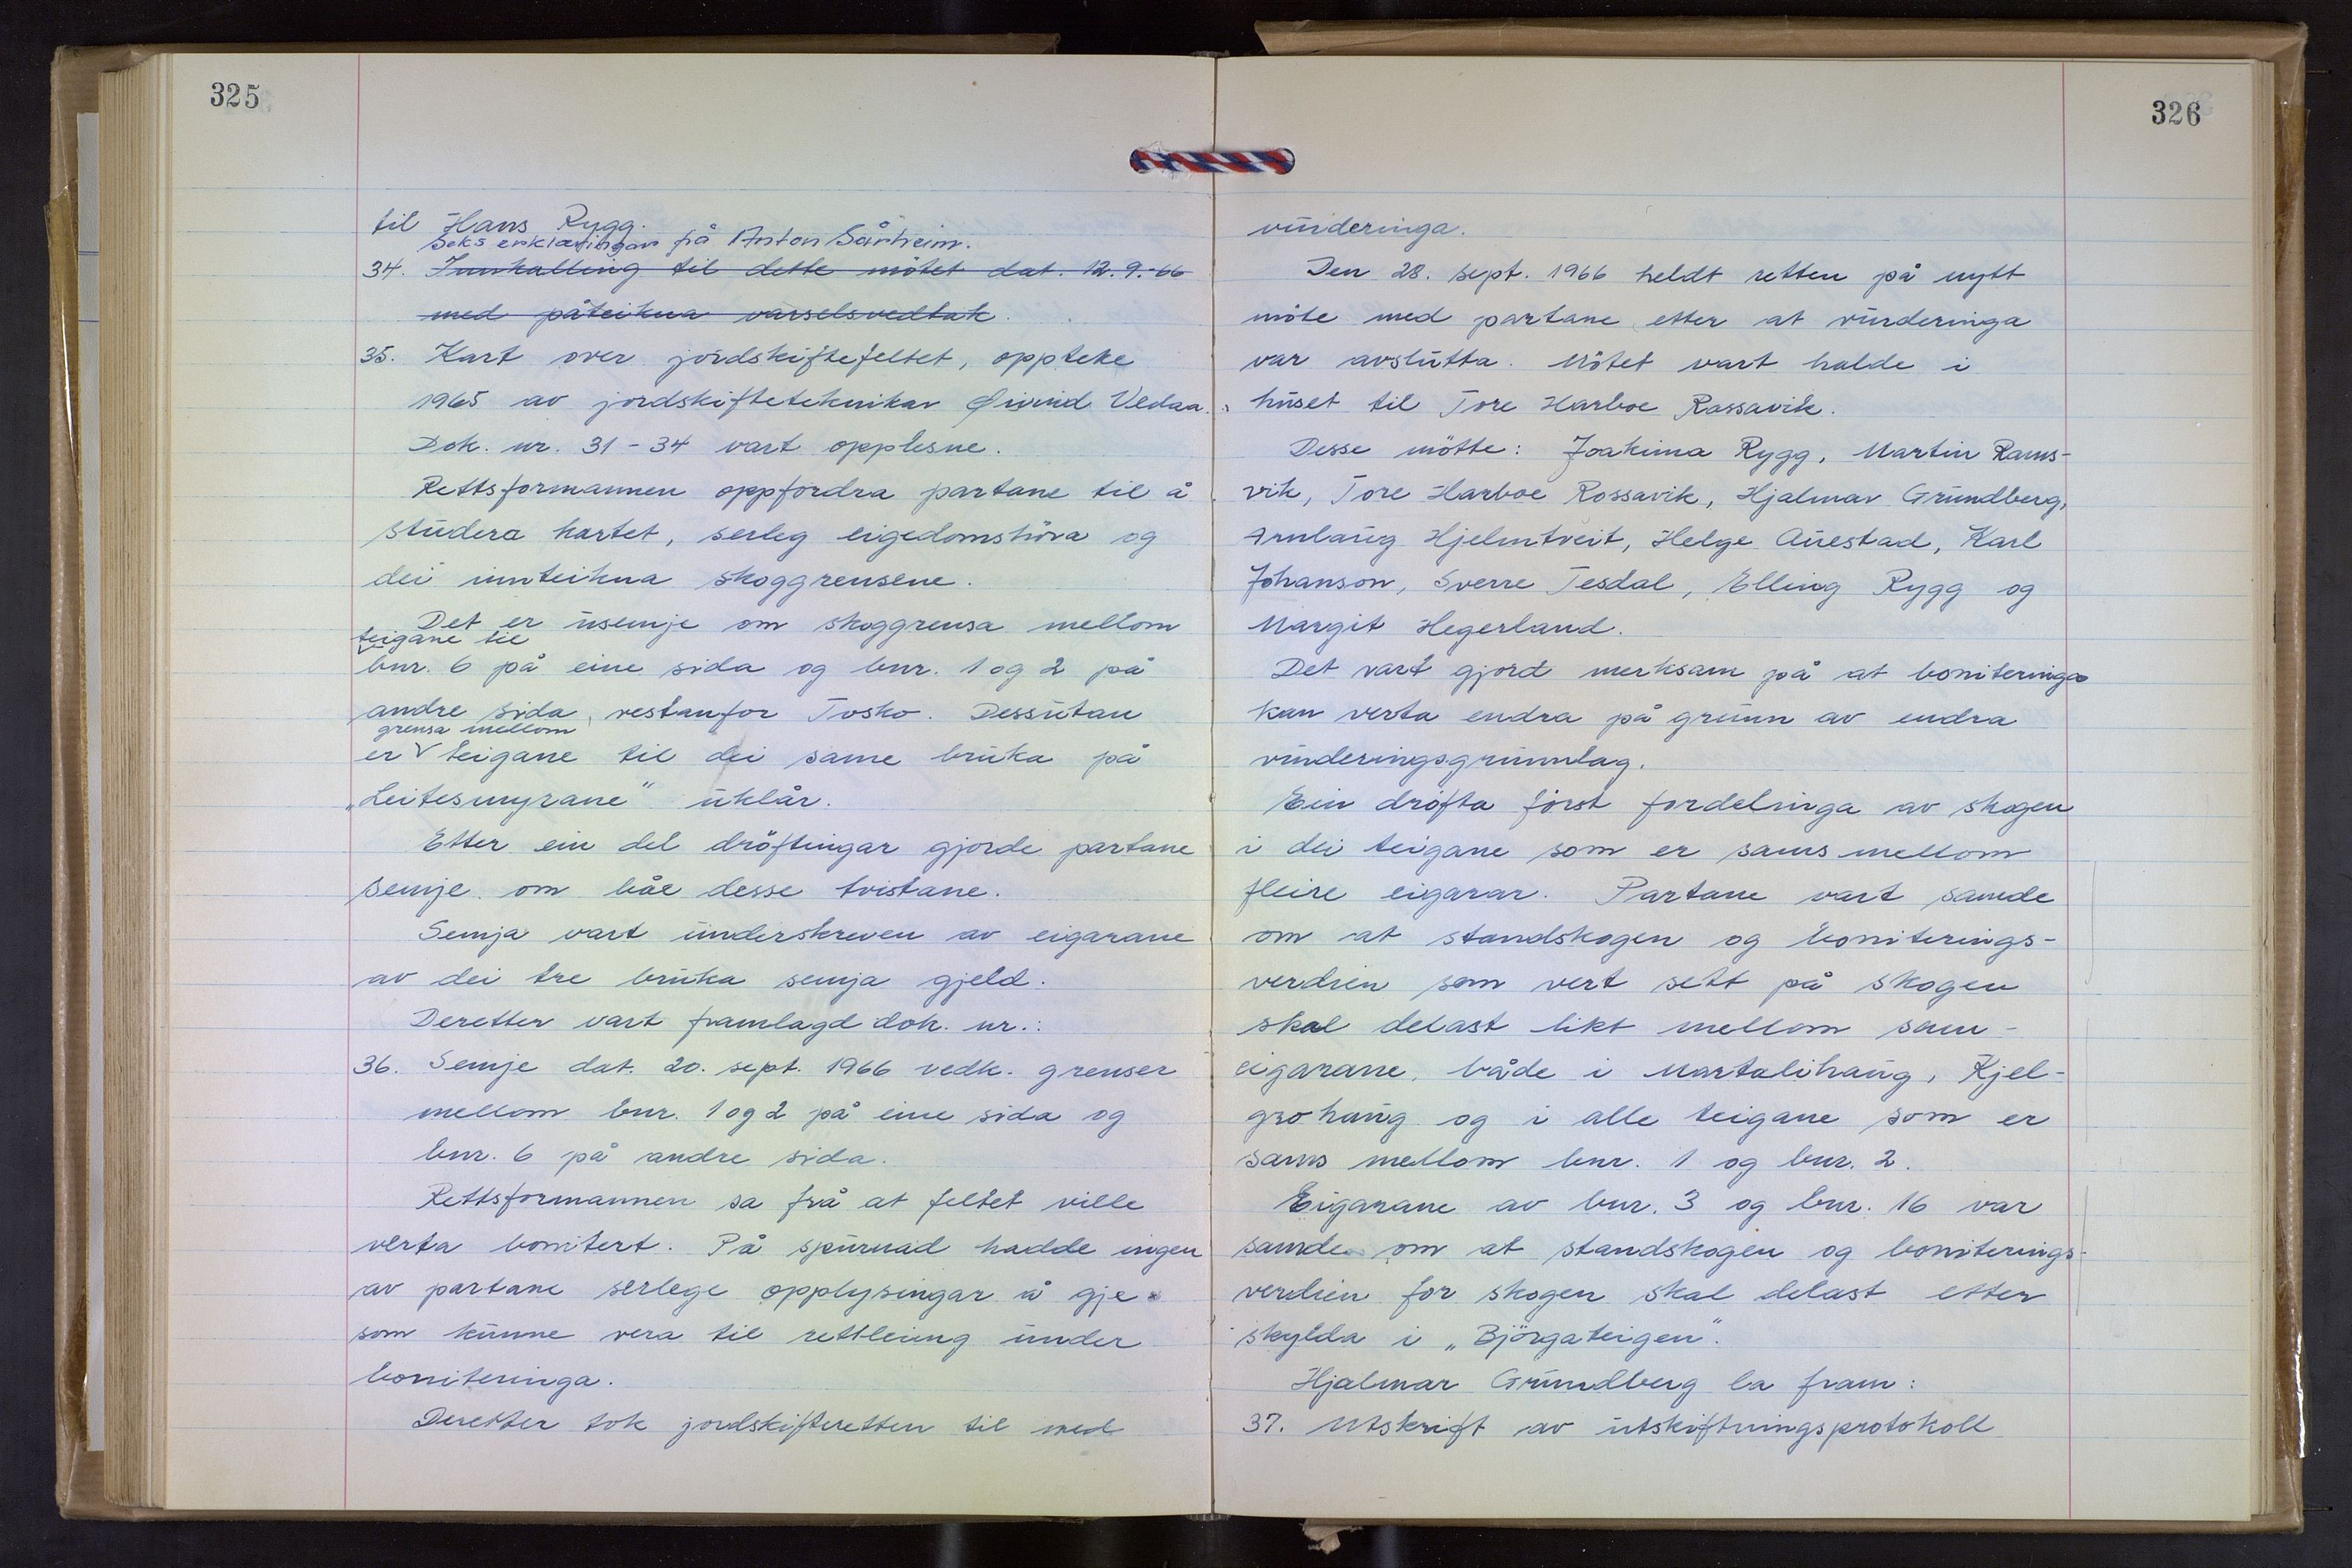 325
til Hans Rygg.
Seks erklæringar frå Anton Sårheim.
34. Innkalling til dette mötet dat. 12.9.-66
med påteikna varselsvedtak.
35. Kart over jordskiftefeltet, oppteke
1965 av jordskifteteknikar Øivind Vedaa.
Dok. nr. 31-34 vart opplesne.
Rettsformannen oppfordra partane til å
studera kartet, serleg eigedomshöva og
dei innteikna skoggrensene.
Det er usemje om skoggrensa mellom
teigane til
bnr. 6 på eine sida og bnr. 1 og 2 på
andre sida, vestanfor Tosko. Dessutan
grensa mellom
er teigane til dei same bruka på
„Leitesmyrane" uklår.
Etter ein del dröftingar gjorde partane
semje om båe desse tvistane.
Semja vart underskreven av eigarane
av dei tre bruka semja gjeld.
Deretter vart framlagd dok. nr.:
36. Semje dat. 20. sept. 1966 vedk. grenser
mellom bnr. 1 og 2 på eine sida og
bnr. 6 på andre sida.
Rettsformannen sa frå at feltet ville
verta bonitert. På spurnad hadde ingen
av partane serlege opplysingar å gje
som kunne vera til rettleiing under
boniteringa.
Deretter tok jordskifteretten til med
326
vurderinga.
Den 28. sept. 1966 heldt retten på nytt
möte med partane etter at vurderinga
var avslutta. Mötet vart halde i
huset til Tore Harboe Rossavik.
Desse mötte: Joakima Rygg, Martin Rams-
vik, Tore Harboe Rossavik, Hjalmar Grundberg,
Arnlaug Hjelmtveit, Helge Auestad, Karl
Johanson, Sverre Tesdal, Elling Rygg og
Margit Hegerland.
Det vart gjord merksam på at boniteringa
kan verta endra på grunn av endra
vurderingsgrunnlag.
Ein dröfta först fordelinga av skogen
i dei teigane som er sams mellom
fleire eigarar. Partane vart samde
om at standskogen og boniterings-
verdien som vert sett på skogen
skal delast likt mellom sam-
eigarane, både i Martalihaug, Kjel-
grohaug og i alle teigane som er
sams mellom bnr. 1 og bnr. 2.
Eigarane av bnr. 3 og bnr. 16 var
samde om at standskogen og boniterings-
verdien for skogen skal delast etter
skylda i „Björgateigen".
Hjalmar Grundberg la fram:
37. Utskrift av utskiftningsprotokoll